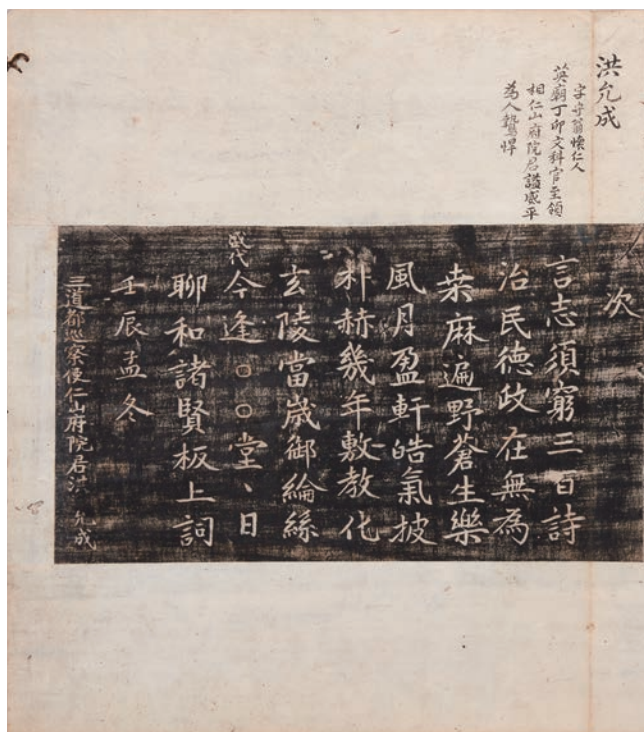 洪允成
字守翁懷仁人
英廟丁卯文科官至領
相仁山府院君諡威平
為人鷙悍
次
言志須窮三百詩
治民德政在無為
桒麻遍野蒼生樂
風月盈軒皓氣披
朴赫幾年敷教化
玄陵當歲御綸絲
盛代
今逢○○堂、日
聊和諸賢板上詞
壬辰孟冬
三道都巡察使仁山府院君洪 允成